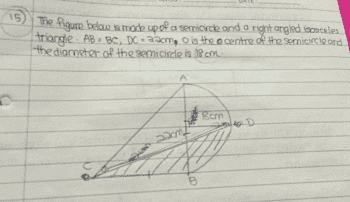 15) The figure below is made up of a semicircle and a right angled isosceles
triangle. AB = BC, DC = 22cm, O is the centre of the semicircle and
the diameter of the semicircle is 18cm.
A
8cm
D
22cm
C
B